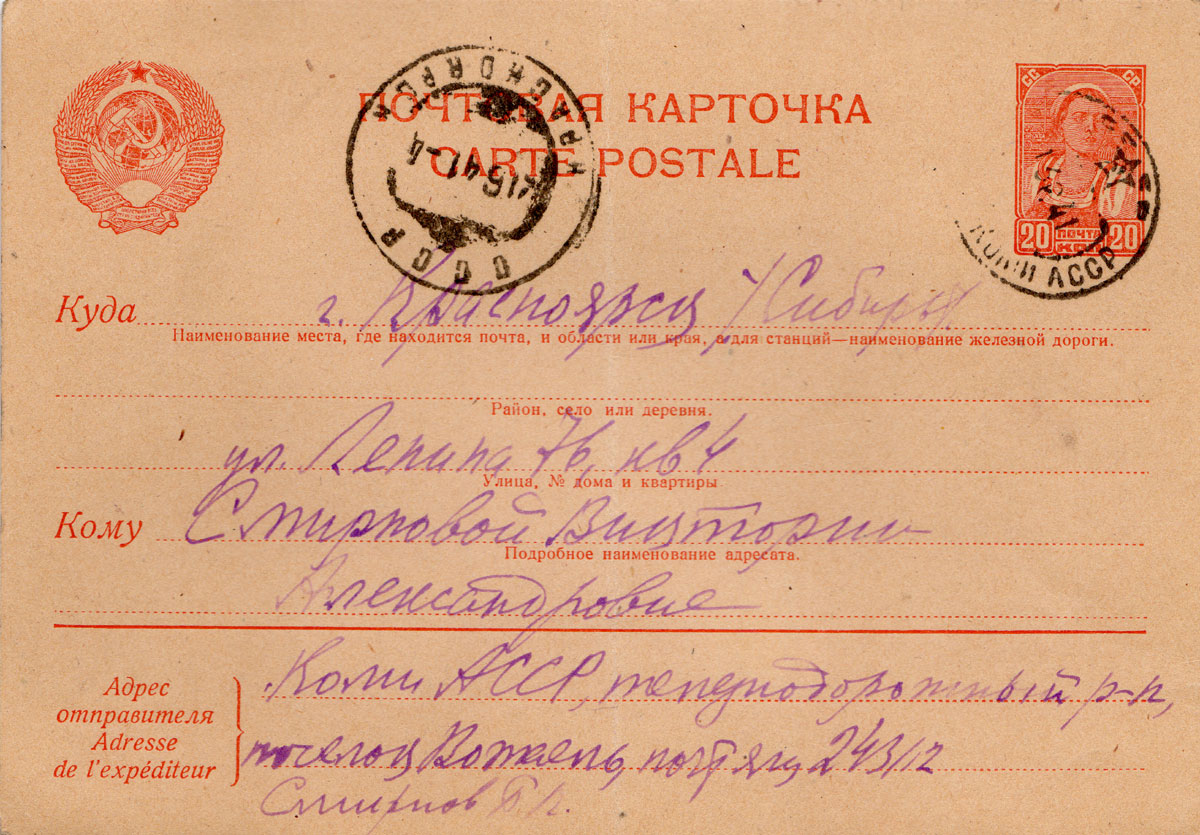 ПОЧТОВАЯ КАРТОЧКА
CARTE POSTALE
СС СР
20 ПОЧТА КОП 20
КОМИ АССР
КРАСНОЯРСК
15 41-4
СССР
Куда г. Красноярск /Сибирь/
Наименование места, где находится почта, и области или края, а для станций—наименование железной дороги.
Район, село или деревня.
ул. Ленина 76, кв 4
Улица, № дома и квартиры
Кому Смирновой Виктории
Подробное наименование адресата.
Александровне
Адрес отправителя
Adresse de l'expéditeur
Коми АССР, железнодорожный р-н,
поселок Вожаель, почт. ящ 243/2
Смирнов Б.